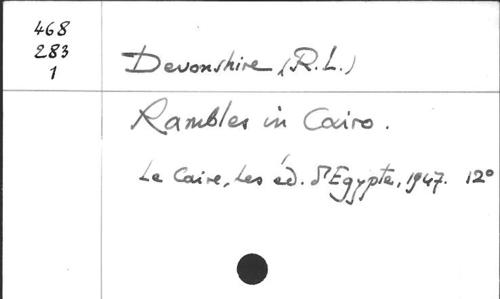 468
283
1
Devonshire (R.L.)
Rambles in Cairo.
Le Caire, Les éd. d'Egypte, 1947. 12°